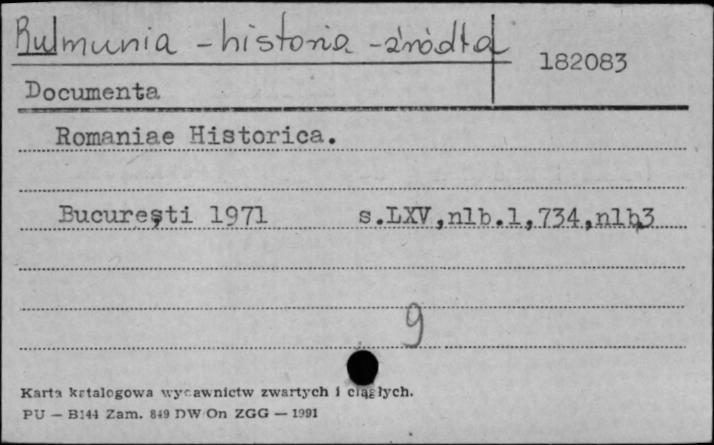 Rulmunia - historia - źródła
182083
Documenta
Romaniae Historica.
Bucureşti 1971 s.LXV,nlb.1,734,nlb,3
9
Karta katalogowa wydawnictw zwartych i ciągłych.
PU — B144 Zam. 849 DW On ZGG — 1991